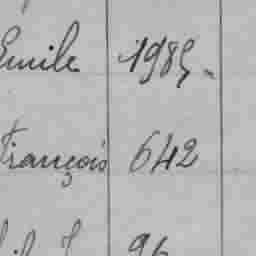 Emile 1985
François 642